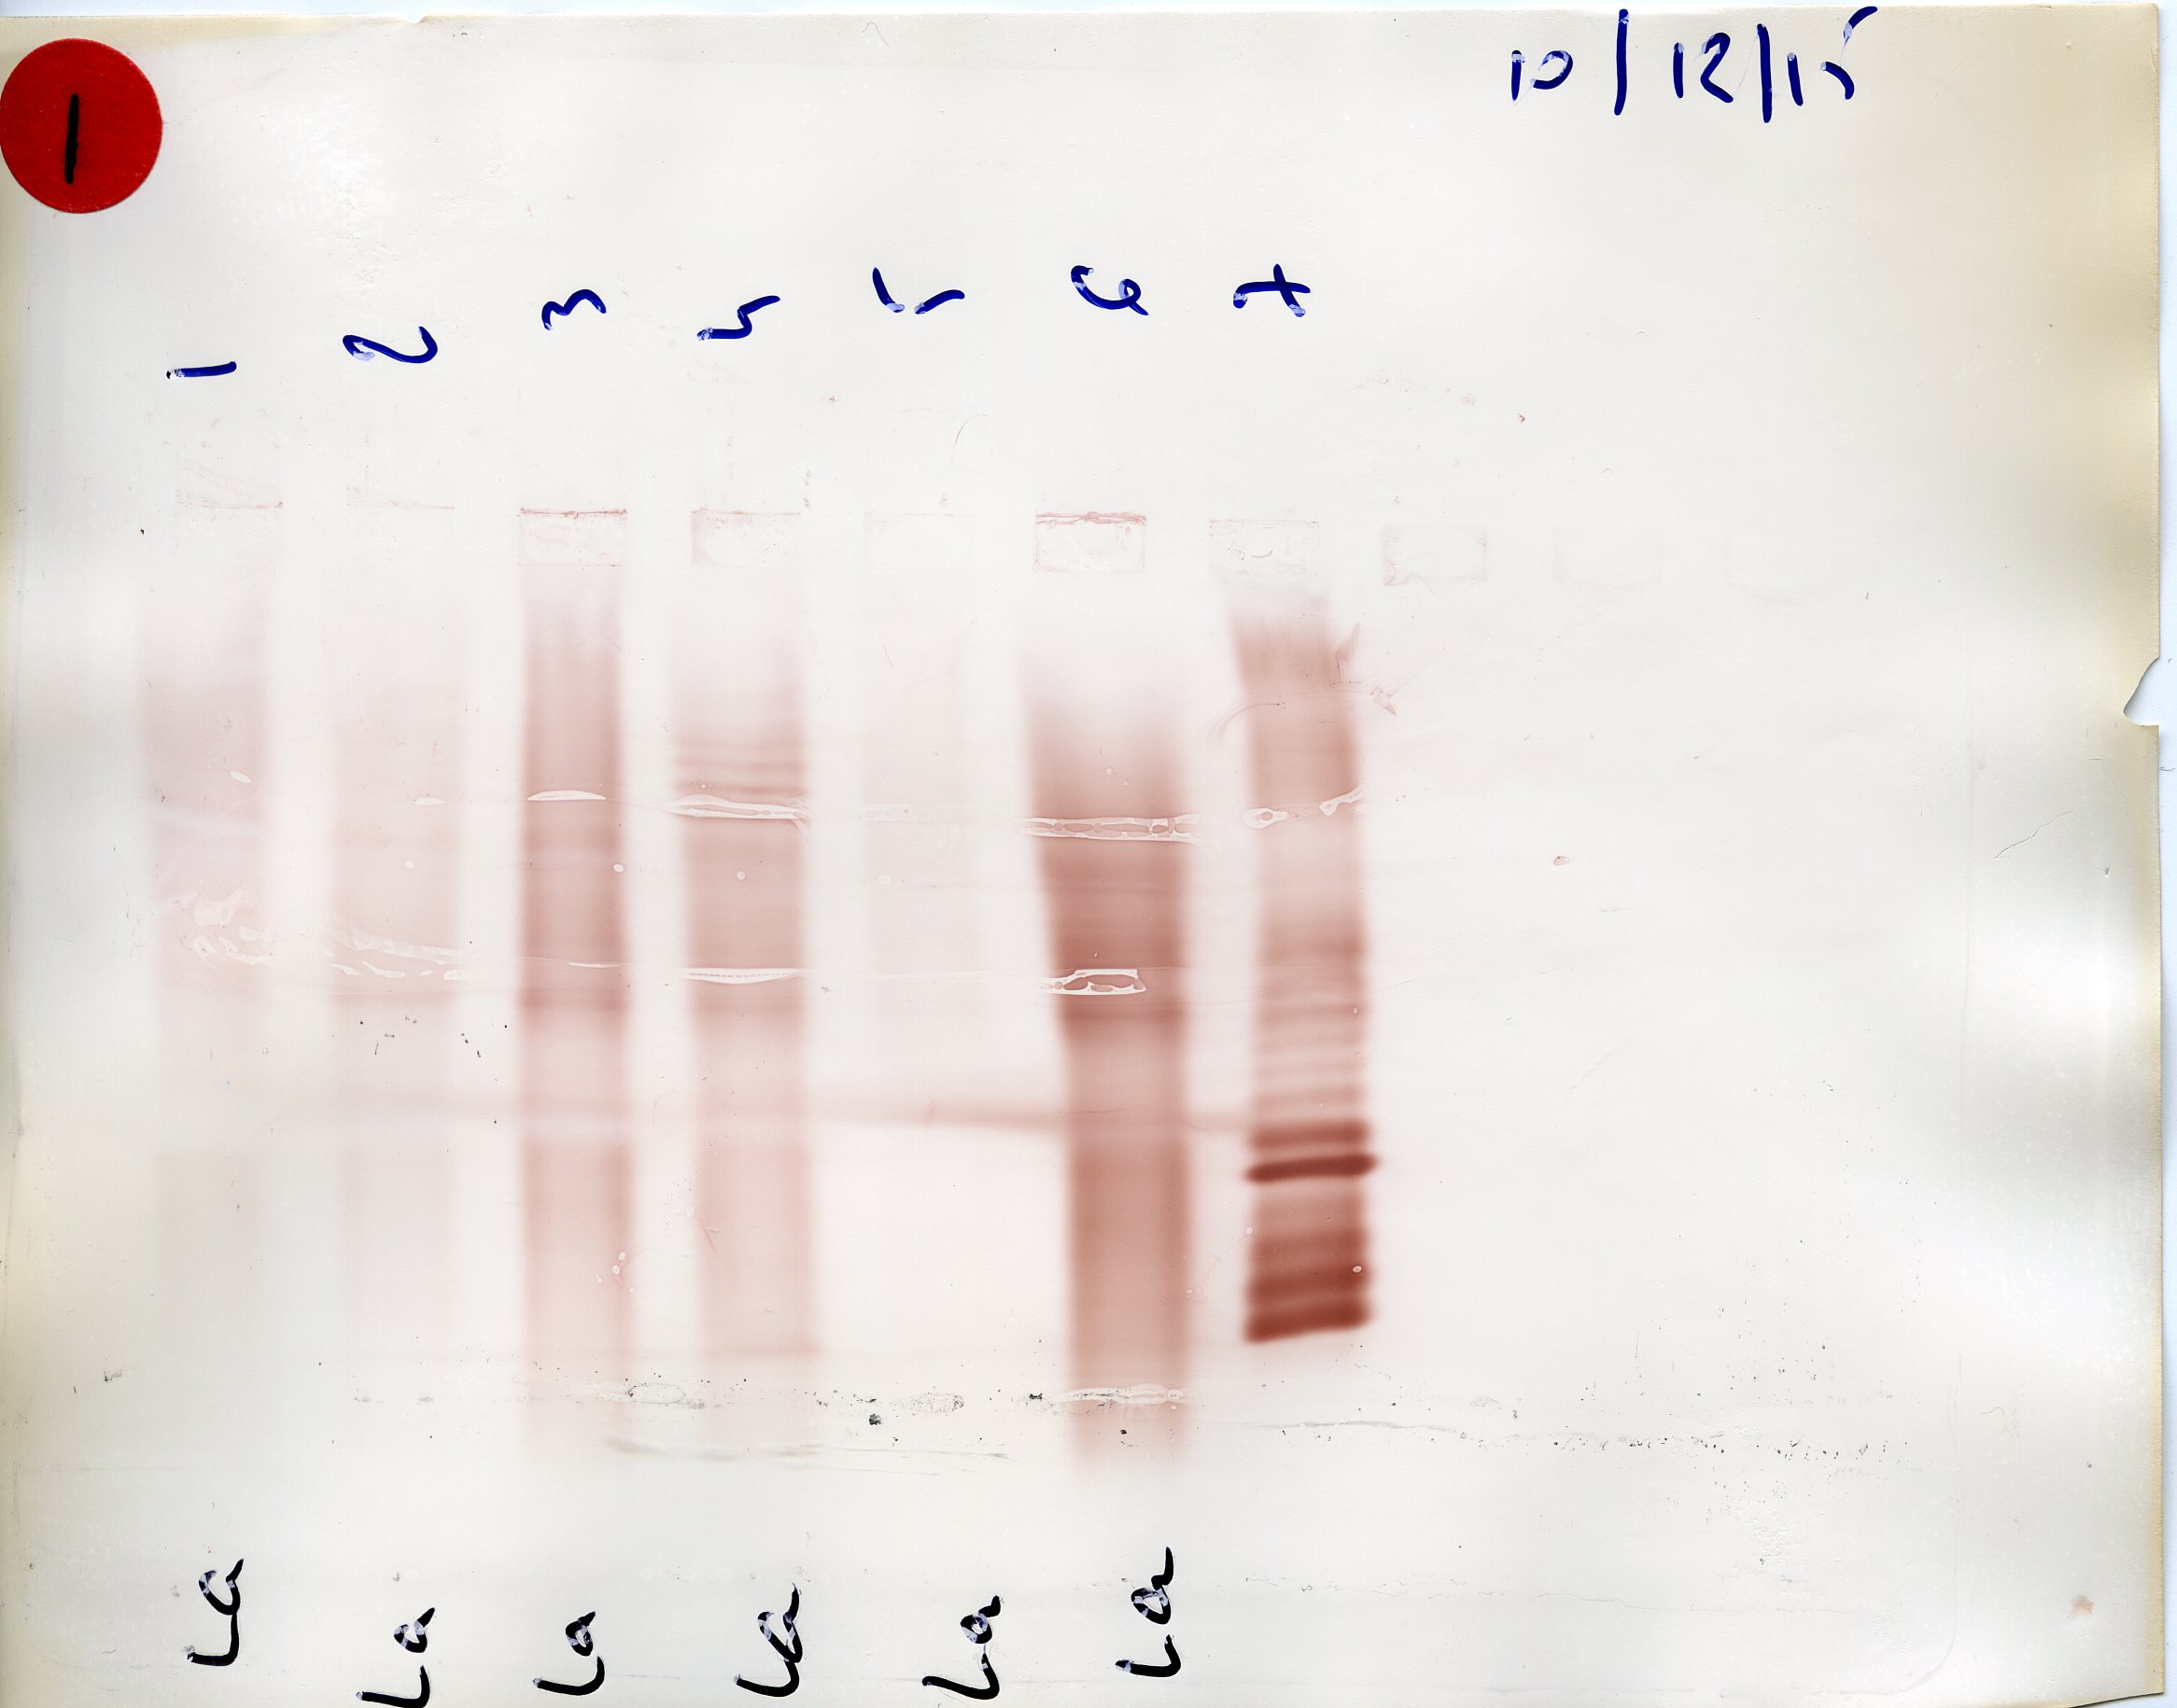 1
10/12/15
1 2 3 4 5 6 7
La La La La La La